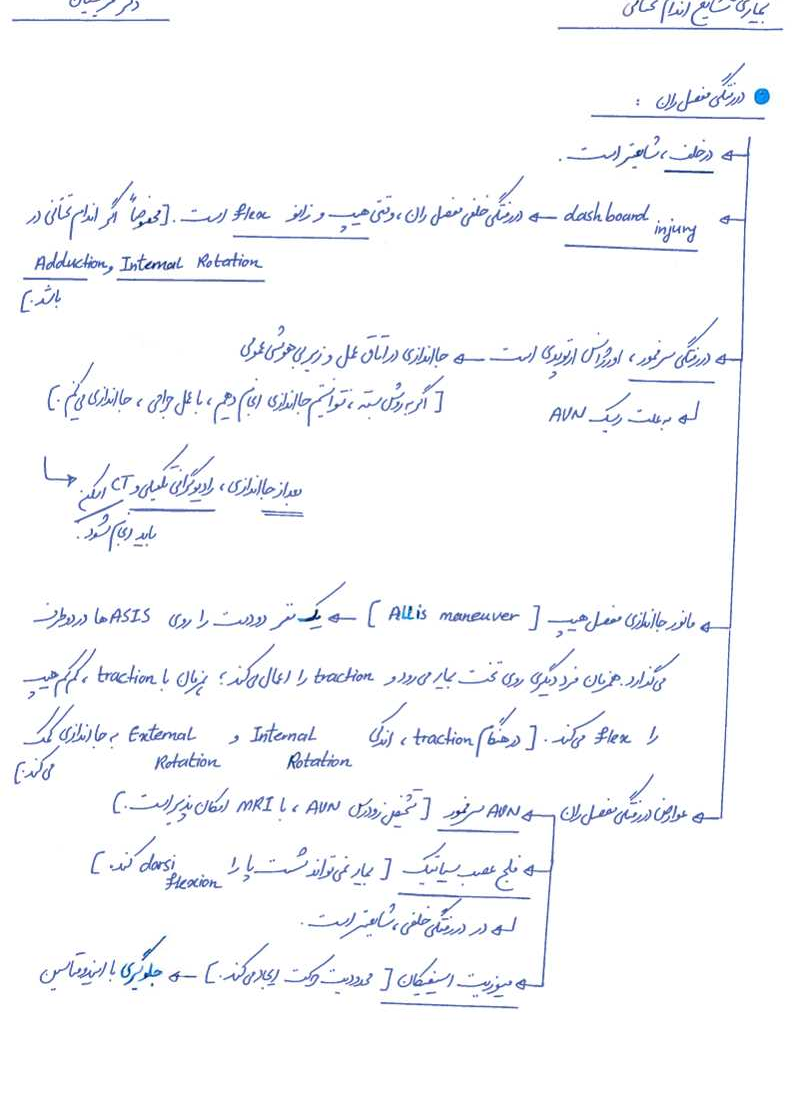 بیماری شایع اندام تحتانی
دکتر
دررفتگی مفصل ران :
درخلف، شایعتر است.
dashboard injury ← دررفتگی خلفی مفصل ران، وقتی هیپ و زانو flex است. [مخصوصاً اگر اندام تحتانی در
Adduction, Internal Rotation
باشد.]
دررفتگی سرفمور، اورژانس ارتوپدی است ← جااندازی در اتاق عمل و زیر بی‌هوشی عمومی
[اگر به روش بسته، نتوانستیم جااندازی انجام دهیم، با عمل جراحی، جااندازی می‌کنیم.]
به علت ریسک AVN
بعد از جااندازی، رادیوگرافی تکمیلی و CT اسکن
باید انجام شود.
مانور جااندازی مفصل هیپ [Allis maneuver] ← یک نفر دو دست را روی ASIS ها در دو طرف
می‌گذارد. همزمان فرد دیگری روی تخت بیمار می‌رود و traction را اعمال می‌کند؛ همزمان با traction، کم کم هیپ
را flex می‌کند. [در هنگام traction، اندکی Internal Rotation و External Rotation به جااندازی کمک
می‌کند.]
عوارض دررفتگی مفصل ران ← AVN سرفمور [تشخیص زودرس AVN، با MRI امکان پذیر است.]
فلج عصب سیاتیک [بیمار نمی‌تواند شست پا را dorsi flexion کند.]
در دررفتگی خلفی، شایعتر است.
میوزیت اسیفیکان [محدودیت حرکت ایجاد می‌کند.] ← جلوگیری با ایندومتاسین